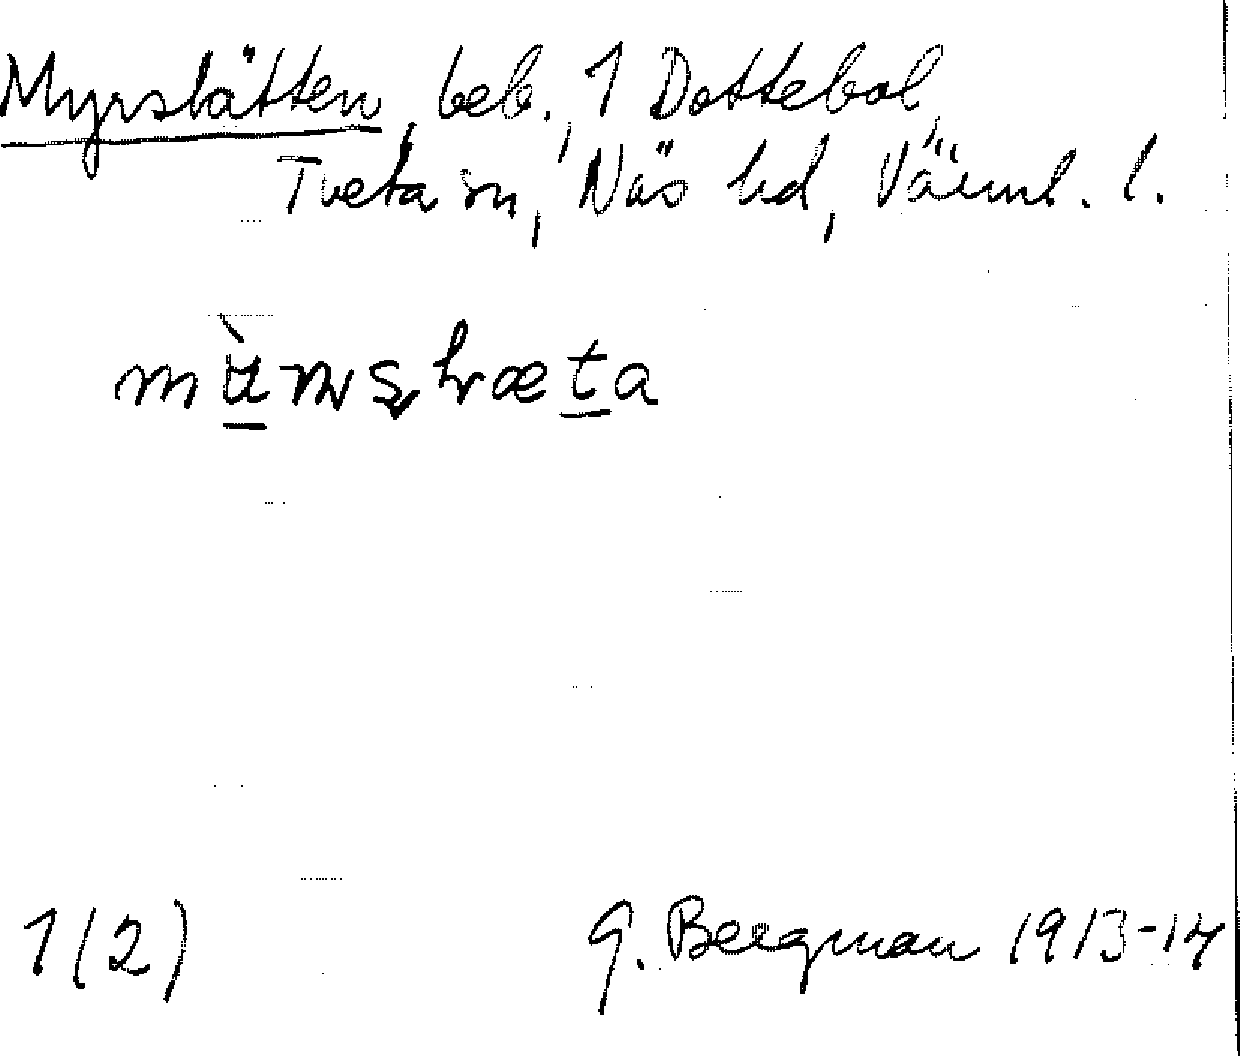 Myrslätten, beb., 1 Dottebol,
Tveta sn, Näs hd, Värml. l.
1(2) G. Bergman 1913-14